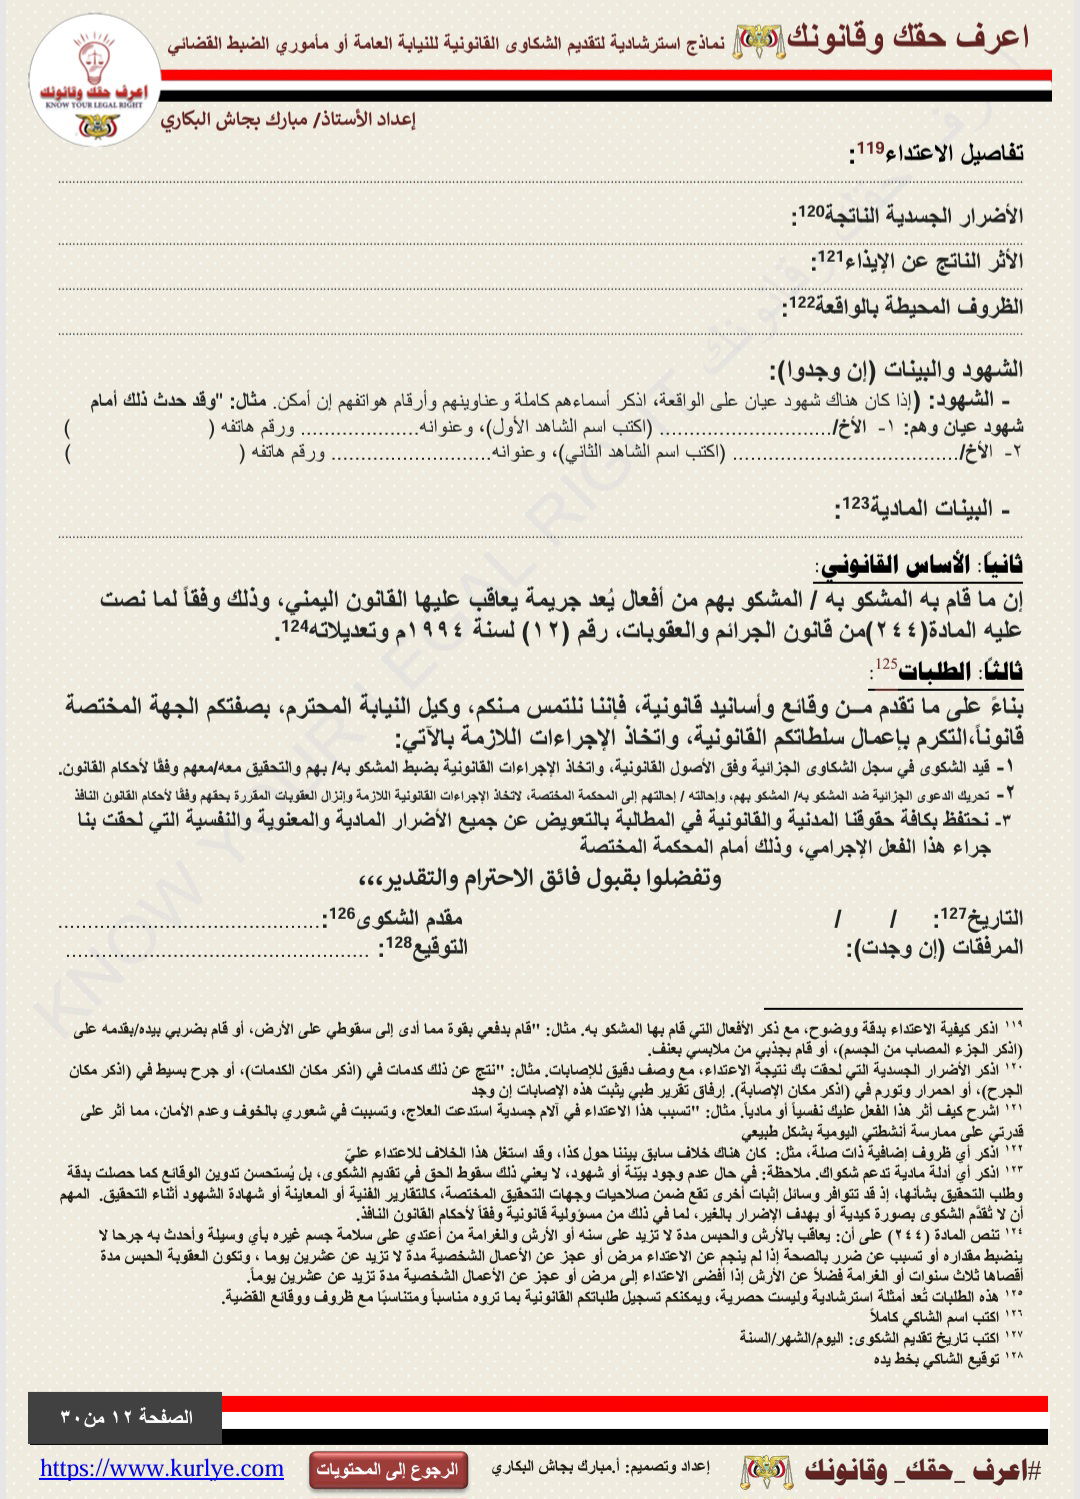 اعرف حقك وقانونك نماذج استرشادية لتقديم الشكاوى القانونية للنيابة العامة أو مأموري الضبط القضائي
اعرف حقك وقانونك
KNOW YOUR LEGAL RIGHT
إعداد الأستاذ/ مبارك بجاش البكاري
تفاصيل الاعتداء119:
الأضرار الجسدية الناتجة120:
الأثر الناتج عن الإيذاء121:
الظروف المحيطة بالواقعة122:
الشهود والبينات (إن وجدوا):
- الشهود: (إذا كان هناك شهود عيان على الواقعة، اذكر أسماءهم كاملة وعناوينهم وأرقام هواتفهم إن أمكن. مثال: "وقد حدث ذلك أمام
شهود عيان وهم: ١- الأخ/............................. (اكتب اسم الشاهد الأول)، وعنوانه.................... ورقم هاتفه ( )
٢- الأخ/...................................... (اكتب اسم الشاهد الثاني)، وعنوانه........................... ورقم هاتفه ( )
- البينات المادية123:
ثانياً: الأساس القانوني:
إن ما قام به المشكو به / المشكو بهم من أفعال يُعد جريمة يعاقب عليها القانون اليمني، وذلك وفقاً لما نصت
عليه المادة(٢٤٤)من قانون الجرائم والعقوبات، رقم (١٢) لسنة ١٩٩٤م وتعديلاته124.
ثالثاً: الطلبات125:
بناءً على ما تقدم مــن وقائع وأسانيد قانونية، فإننا نلتمس مـنكم، وكيل النيابة المحترم، بصفتكم الجهة المختصة
قانوناً،التكرم بإعمال سلطاتكم القانونية، واتخاذ الإجراءات اللازمة بالآتي:
١- قيد الشكوى في سجل الشكاوى الجزائية وفق الأصول القانونية، واتخاذ الإجراءات القانونية بضبط المشكو به/ بهم والتحقيق معه/معهم وفقًا لأحكام القانون.
٢- تحريك الدعوى الجزائية ضد المشكو به/ المشكو بهم، وإحالته / إحالتهم إلى المحكمة المختصة، لاتخاذ الإجراءات القانونية اللازمة وإنزال العقوبات المقررة بحقهم وفقًا لأحكام القانون النافذ
٣- نحتفظ بكافة حقوقنا المدنية والقانونية في المطالبة بالتعويض عن جميع الأضرار المادية والمعنوية والنفسية التي لحقت بنا
جراء هذا الفعل الإجرامي، وذلك أمام المحكمة المختصة
وتفضلوا بقبول فائق الاحترام والتقدير،،،
التاريخ127: / / مقدم الشكوى126:............................................
المرفقات (إن وجدت): التوقيع128: ...................................................
١١٩ اذكر كيفية الاعتداء بدقة ووضوح، مع ذكر الأفعال التي قام بها المشكو به. مثال: "قام بدفعي بقوة مما أدى إلى سقوطي على الأرض، أو قام بضربي بيده/بقدمه على
(اذكر الجزء المصاب من الجسم)، أو قام بجذبي من ملابسي بعنف.
١٢٠ اذكر الأضرار الجسدية التي لحقت بك نتيجة الاعتداء، مع وصف دقيق للإصابات. مثال: "نتج عن ذلك كدمات في (اذكر مكان الكدمات)، أو جرح بسيط في (اذكر مكان
الجرح)، أو احمرار وتورم في (اذكر مكان الإصابة). إرفاق تقرير طبي يثبت هذه الإصابات إن وجد
١٢١ اشرح كيف أثر هذا الفعل عليك نفسياً أو مادياً. مثال: "تسبب هذا الاعتداء في آلام جسدية استدعت العلاج، وتسببت في شعوري بالخوف وعدم الأمان، مما أثر على
قدرتي على ممارسة أنشطتي اليومية بشكل طبيعي
١٢٢ اذكر أي ظروف إضافية ذات صلة، مثل: كان هناك خلاف سابق بيننا حول كذا، وقد استغل هذا الخلاف للاعتداء عليّ
١٢٣ اذكر أي أدلة مادية تدعم شكواك. ملاحظة: في حال عدم وجود بيّنة أو شهود، لا يعني ذلك سقوط الحق في تقديم الشكوى، بل يُستحسن تدوين الوقائع كما حصلت بدقة
وطلب التحقيق بشأنها، إذ قد تتوافر وسائل إثبات أخرى تقع ضمن صلاحيات وجهات التحقيق المختصة، كالتقارير الفنية أو المعاينة أو شهادة الشهود أثناء التحقيق. المهم
أن لا تُقدَّم الشكوى بصورة كيدية أو بهدف الإضرار بالغير، لما في ذلك من مسؤولية قانونية وفقاً لأحكام القانون النافذ.
١٢٤ تنص المادة (٢٤٤) على أن: يعاقب بالأرش والحبس مدة لا تزيد على سنه أو الأرش والغرامة من أعتدي على سلامة جسم غيره بأي وسيلة وأحدث به جرحا لا
ينضبط مقداره أو تسبب عن ضرر بالصحة إذا لم ينجم عن الاعتداء مرض أو عجز عن الأعمال الشخصية مدة لا تزيد عن عشرين يوما ، وتكون العقوبة الحبس مدة
أقصاها ثلاث سنوات أو الغرامة فضلاً عن الأرش إذا أفضى الاعتداء إلى مرض أو عجز عن الأعمال الشخصية مدة تزيد عن عشرين يوماً.
١٢٥ هذه الطلبات تُعد أمثلة استرشادية وليست حصرية، ويمكنكم تسجيل طلباتكم القانونية بما تروه مناسباً ومتناسبًا مع ظروف ووقائع القضية.
١٢٦ اكتب اسم الشاكي كاملاً
١٢٧ اكتب تاريخ تقديم الشكوى: اليوم/الشهر/السنة
١٢٨ توقيع الشاكي بخط يده
الصفحة ١٢ من٣٠
#اعرف _حقك_ وقانونك إعداد وتصميم: أ.مبارك بجاش البكاري الرجوع إلى المحتويات https://www.kurlye.com